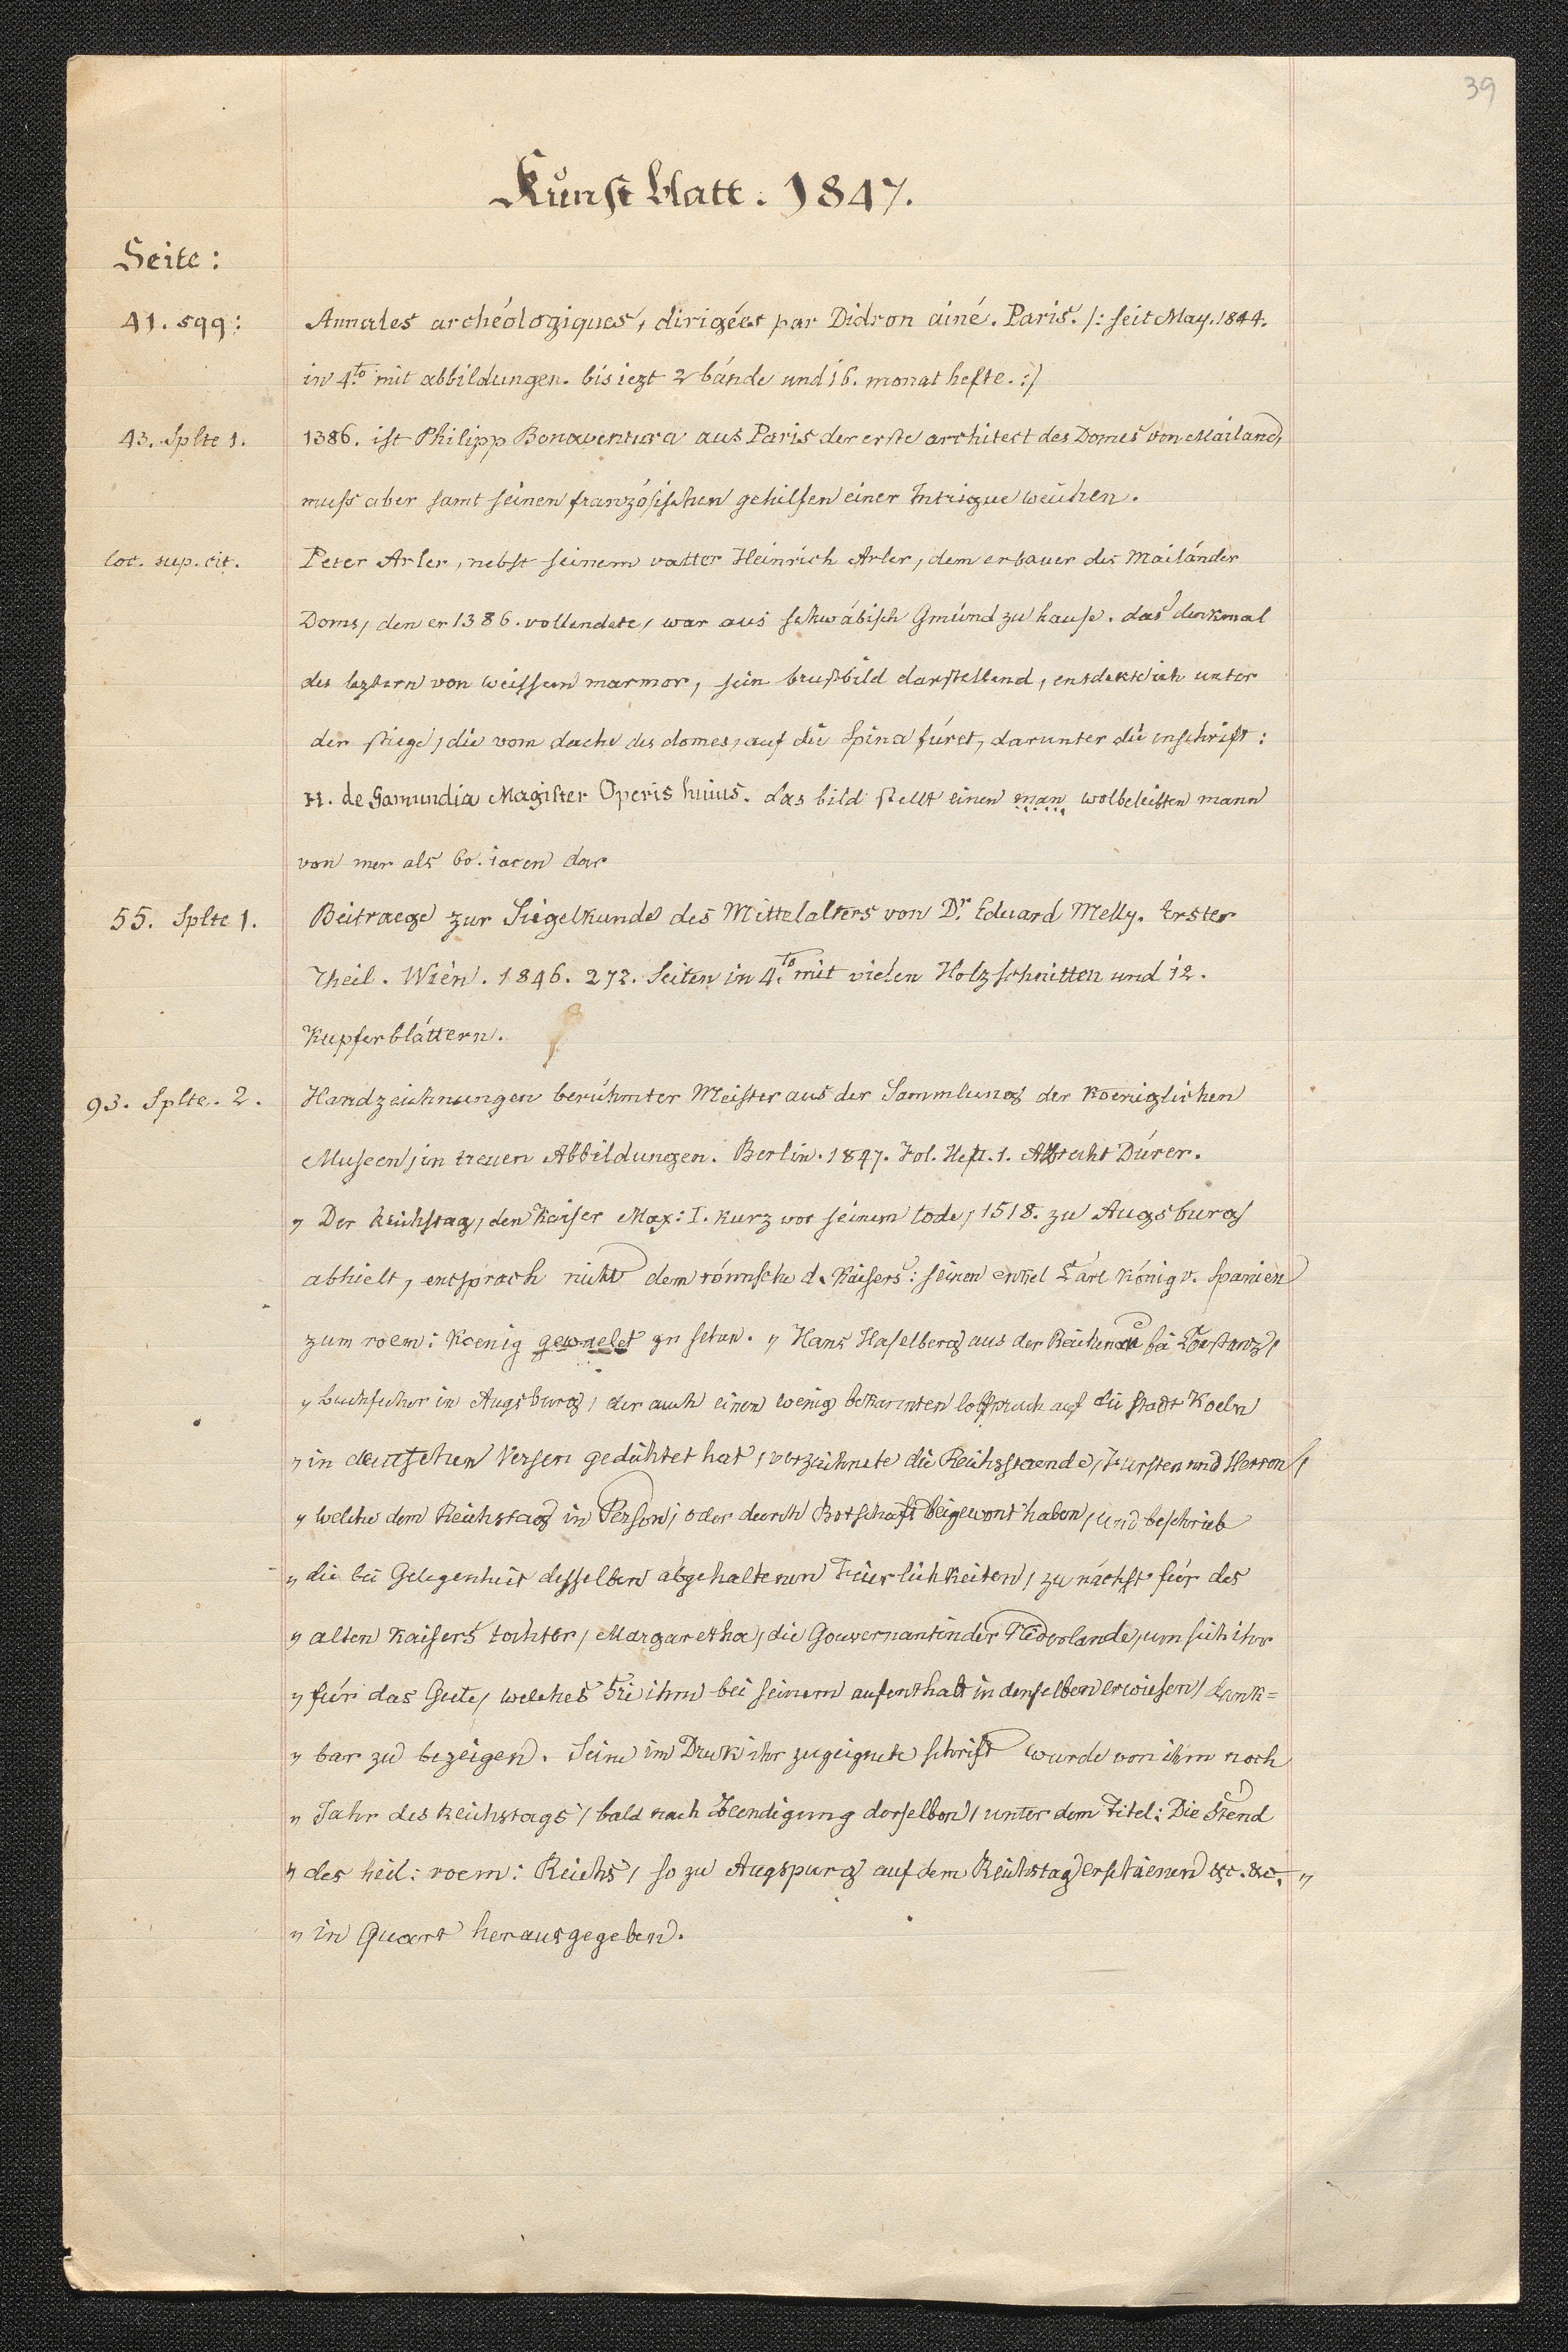 39
Kunstblatt. 1847.
Seite:
41. sqq: Annales archéologiques, dirigées par Didron ainé. Paris. /: seit May. 1844.
in 4.to mit abbildungen. bis iezt 2 bánde und 16. monathefte. :/
43. Splte 1. 1386. ist Philipp Bonaventura aus Paris der erste architect des Domes von Mailand,
muss aber samt seinen französischen gehilfen einer Intrigue weichen.
loc. sup. cit. Peter Arler, nebst seinem vatter Heinrich Arler, dem erbauer des Mailánder
Doms, den er 1386. vollendete, war aus schwábisch Gmünd zu hause. das denkmal
des leztern von weissem marmor, sein brustbild darstellend, entdekte ich unter
der stiege, die vom dache des domes, auf die Spina fúret, darunter die inschrift:
H. de Gamundia Magister Operis huius. das bild stellt einen man wolbeleibten mann
von mer als 60. iaren dar
55. Splte 1. Beitraege zur Siegelkunde des Mittelalters von Dr. Eduard Melly. Erster
Theil. Wien. 1846. 272. Seiten in 4.to mit vielen Holzschnitten und 12.
Kupferbláttern.
93. Splte. 2. Handzeichnungen berühmter Meister aus der Sammlung der Koeniglichen
Museen, in treuen Abbildungen. Berlin. 1847. Fol. Heft. 1. Albrecht Dúrer.
„ Der Reichstag, den Kaiser Max: I. kurz vor seinem tode, 1518. zu Augsburg
abhielt, entsprach nicht dem wunsche d. Kaisers: seinen enkel Carl König v. Spanien
zum roem: Koenig gewaelet zu sehen. „ Hans Haselberg aus der Reichenau bei Costanz,
„ buchfürer in Augsburg, der auch einen wenig bekannten lobspruch auf die stadt Koeln
„ in deutschen Versen gedichtet hat, verzeichnete die Reichsstaende, Fürsten und Herren,
„ welche dem Reichstag in Person, oder durch Botschaft beigewont haben, und beschrieb
„ die bei Gelegenheit desselben abgehaltenen Feierlichkeiten, zunáchst für des
„ alten Kaisers tochter, Margaretha, die Gouvernantin der Niederlande, um sich ihr
„ fúr das Gute, welches Sie ihm bei seinem aufenthalt in denselben erwiesen, dank=
„ bar zu bezeigen. Seine im Druk ihr zugeignete schrift wurde von ihm noch
„ Jahr des Reichstags, bald nach Beendigung derselben, unter dem Titel: Die Stend
„ des heil: roem: Reichs, so zu Augspurg auf dem Reichstag erschienen &c. &c. „
„ in Quart herausgegeben.